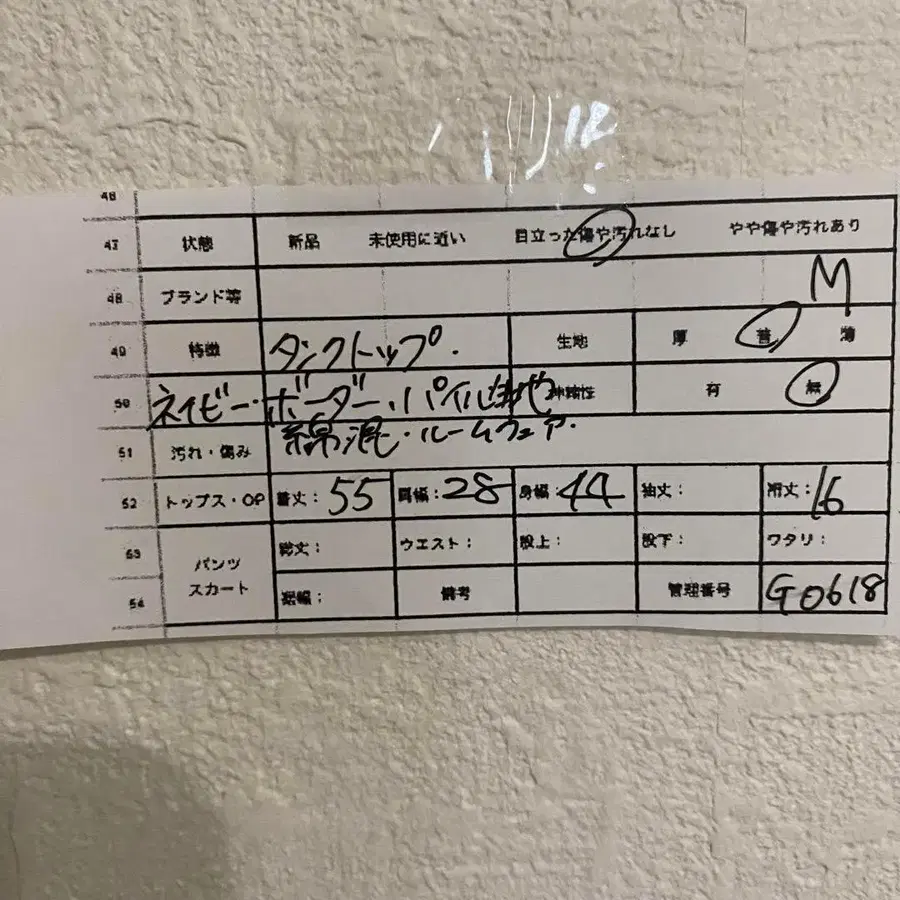 46
47 状態 新品 未使用に近い 目立った傷や汚れなし やや傷や汚れあり
48 ブランド等 M
49 特徴 タンクトップ. 生地 厚 普 薄
50 ネイビー・ボーダー・パイル生地 伸縮性 有 無
綿混・ルームウェア・
51 汚れ・傷み
52 トップス・OP 着丈:55 肩幅:28 身幅:44 袖丈: 裄丈:16
53 パンツ スカート 総丈: ウエスト: 股上: 股下: ワタリ:
54 裾幅: 備考 管理番号 G0618